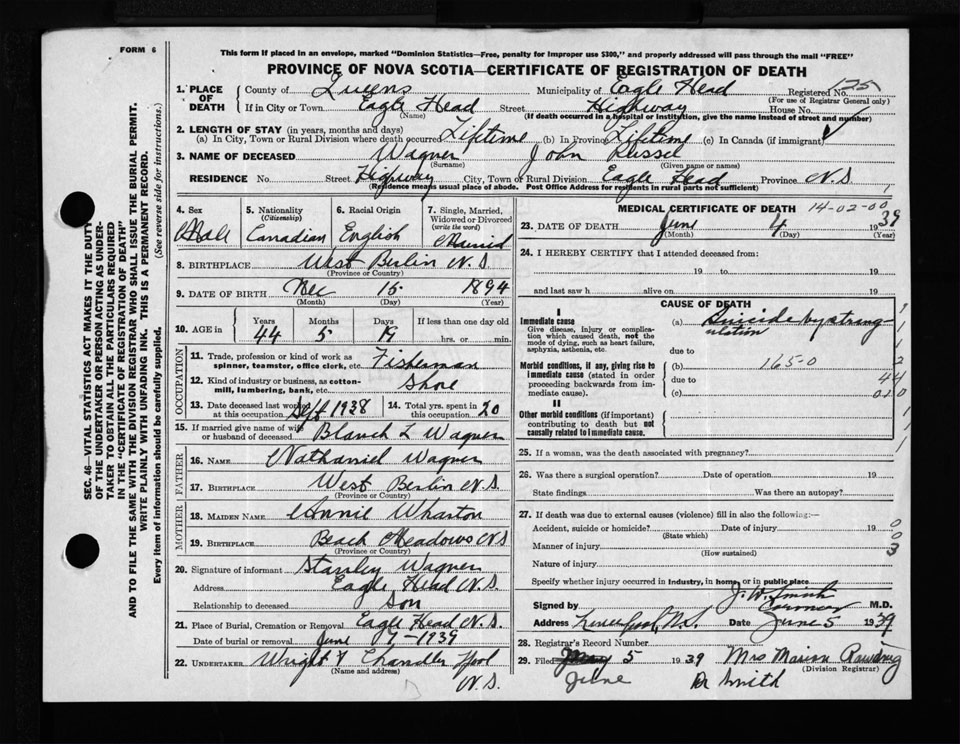 FORM 6
This form if placed in an envelope, marked "Dominion Statistics—Free, penalty for improper use $300," and properly addressed will pass through the mail "FREE"
PROVINCE OF NOVA SCOTIA—CERTIFICATE OF REGISTRATION OF DEATH
SEC. 46—VITAL STATISTICS ACT MAKES IT THE DUTY
OF THE UNDERTAKER OR PERSON ACTING AS UNDER-
TAKER TO OBTAIN ALL THE PARTICULARS REQUIRED
IN THE "CERTIFICATE OF REGISTRATION OF DEATH"
AND TO FILE THE SAME WITH THE DIVISION REGISTRAR WHO SHALL ISSUE THE BURIAL PERMIT.
WRITE PLAINLY WITH UNFADING INK. THIS IS A PERMANENT RECORD.
Every item of information should be carefully supplied. (See reverse side for instructions.)
1. PLACE OF DEATH
County of Queens Municipality of Eagle Head Registered No. 125
(For use of Registrar General only)
If in City or Town Eagle Head Street Highway House No.
(Name) (If death occurred in a hospital or institution, give the name instead of street and number)
2. LENGTH OF STAY (in years, months and days)
(a) In City, Town or Rural Division where death occurred Lifetime (b) In Province Lifetime (c) In Canada (if immigrant)
3. NAME OF DECEASED Wagner John Russel
(Surname) (Given name or names)
RESIDENCE No. Street Highway City, Town or Rural Division Eagle Head Province N.S
(Residence means usual place of abode. Post Office Address for residents in rural parts not sufficient)
4. Sex Male
5. Nationality (Citizenship) Canadian
6. Racial Origin English
7. Single, Married, Widowed or Divorced (write the word) Married
8. BIRTHPLACE West Berlin N.S
(Province or Country)
9. DATE OF BIRTH Dec 15 1894
(Month) (Day) (Year)
10. AGE in Years 44 Months 5 Days 19 If less than one day old
hrs. or min.
OCCUPATION
11. Trade, profession or kind of work as spinner, teamster, office clerk, etc. Fisherman
12. Kind of industry or business, as cotton-mill, lumbering, bank, etc. Shore
13. Date deceased last worked at this occupation Sept 1938
14. Total yrs. spent in this occupation 20
15. If married give name of wife or husband of deceased Blanch L Wagner
FATHER
16. NAME Nathaniel Wagner
17. BIRTHPLACE West Berlin N.S.
(Province or Country)
MOTHER
18. MAIDEN NAME Annie Wharton
19. BIRTHPLACE Beach Meadows N.S
(Province or Country)
20. Signature of informant Stanley Wagner
Address Eagle Head N.S
Relationship to deceased Son
21. Place of Burial, Cremation or Removal Eagle Head N.S.
Date of burial or removal June 7-1939
22. UNDERTAKER Wright & Chandler Lpool
(Name and address) N.S.
MEDICAL CERTIFICATE OF DEATH 14-02-00
23. DATE OF DEATH June 4 1939
(Month) (Day) (Year)
24. I HEREBY CERTIFY that I attended deceased from:
19 to 19
and last saw h alive on 19
CAUSE OF DEATH
I
Immediate cause
Give disease, injury or complication which caused death, not the mode of dying, such as heart failure, asphyxia, asthenia, etc.
(a) Suicide by strangulation
due to
Morbid conditions, if any, giving rise to immediate cause (stated in order proceeding backwards from immediate cause).
(b) 165-0
due to
(c)
II
Other morbid conditions (if important) contributing to death but not causally related to immediate cause.
25. If a woman, was the death associated with pregnancy?
26. Was there a surgical operation? Date of operation 19
State findings Was there an autopsy?
27. If death was due to external causes (violence) fill in also the following:—
Accident, suicide or homicide? Date of injury 19
(State which)
Manner of injury
(How sustained)
Nature of injury
Specify whether injury occurred in industry, in home, or in public place
Signed by J. W. Smith Coroner M.D.
Address Liverpool, N.S. Date June 5 1939
28. Registrar's Record Number
29. Filed June 5 1939 Mrs Marion Rawding
(Division Registrar)
Dr Smith